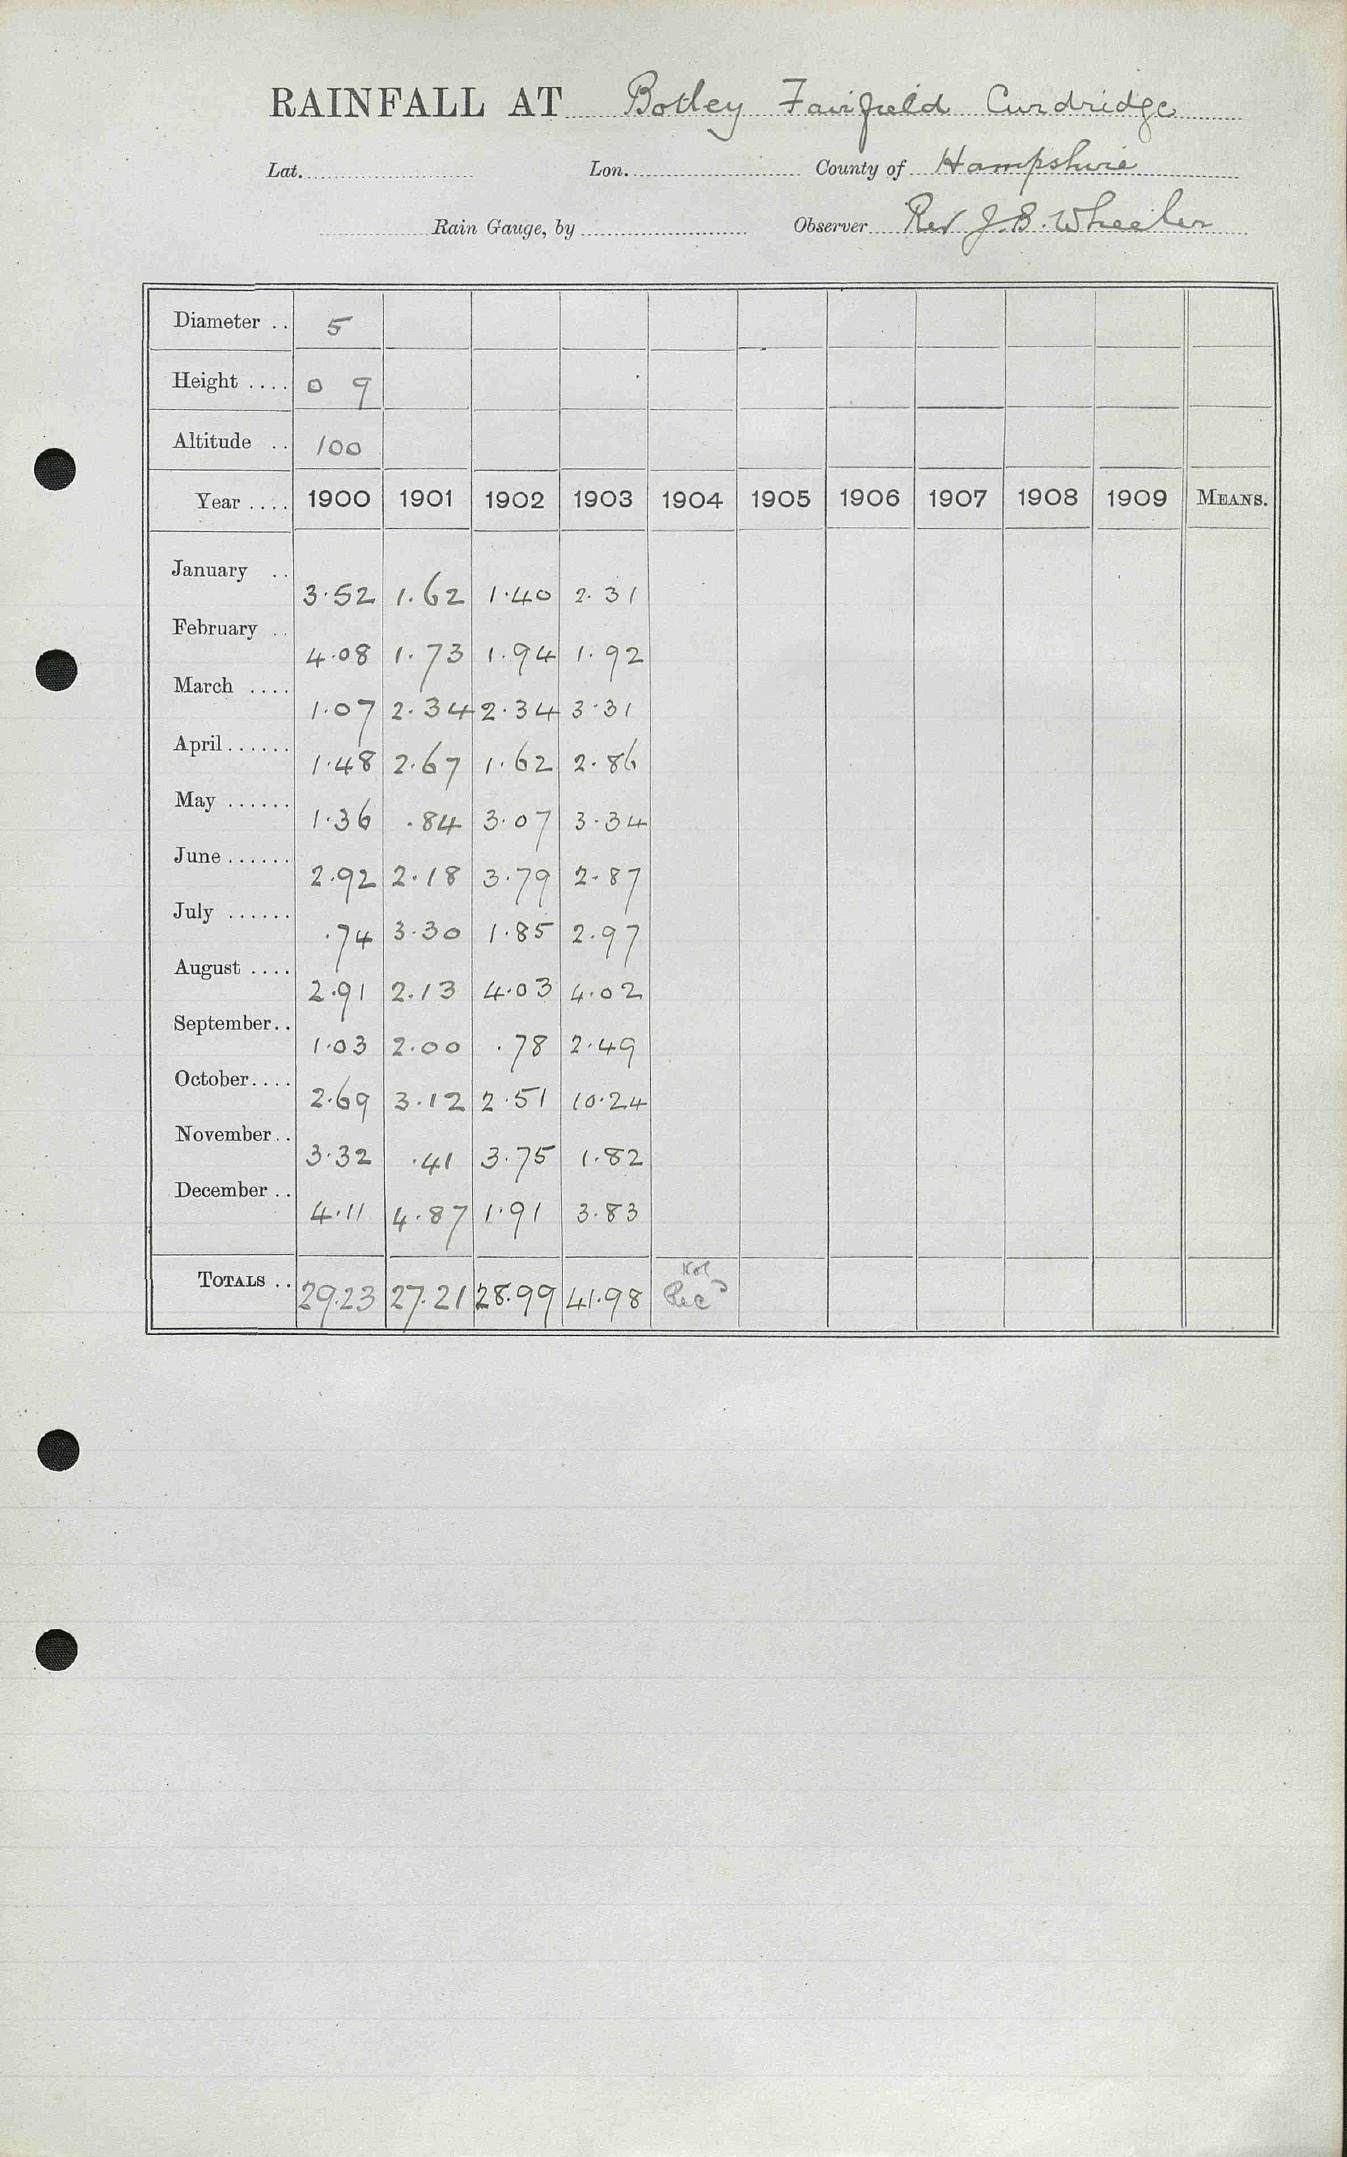 RAINFALL AT Botley Fairfield Curdridge
Lat. Lon. County of Hampshire
Rain Gauge, by Observer Rev J. B. Wheeler
Diameter .. 5
Height .... 0 9
Altitude .. 100
Year .... 1900 1901 1902 1903 1904 1905 1906 1907 1908 1909 MEANS.
January .. 3.52 1.62 1.40 2.31
February .. 4.08 1.73 1.94 1.92
March .... 1.07 2.34 2.34 3.31
April ...... 1.48 2.67 1.62 2.86
May ...... 1.36 .84 3.07 3.34
June ...... 2.92 2.18 3.79 2.87
July ...... .74 3.30 1.85 2.97
August .... 2.91 2.13 4.03 4.02
September .. 1.03 2.00 .78 2.49
October .... 2.69 3.12 2.51 10.24
November .. 3.32 .41 3.75 1.82
December .. 4.11 4.87 1.91 3.83
TOTALS .. 29.23 27.21 28.99 41.98 Not Recd